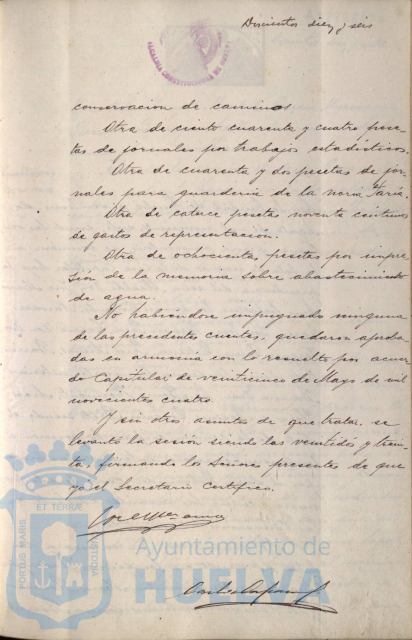 Doscientos diez y seis
ALCALDIA CONSTITUCIONAL DE HUELVA
conservacion de caminos
Otra de ciento cuarenta y cuatro pese-
tas de jornales por trabajos estadisticos.
Otra de cuarenta y dos pesetas de jor-
nales para guarderia de la noria
Otra de catorce pesetas noventa centimos
de gastos de representación.
Otra de ochocientas pesetas por impre-
sión de la memoria sobre abastecimiento
de agua.
No habiéndose impugnado ninguna
de las precedentes cuentas, quedaron aproba-
das en armonia con lo resuelto por acuer-
do Capitular de veinticinco de Mayo de mil
novecientos cuatro.
Y sin otros asuntos de que tratar, se
levantó la sesión siendo las veintidós y trein-
ta, firmando los Señores presentes de que
yo el Secretario Certifico.
PORTUS MARIS
ET TERRÆ
CUSTODIA
Ayuntamiento de
HUELVA